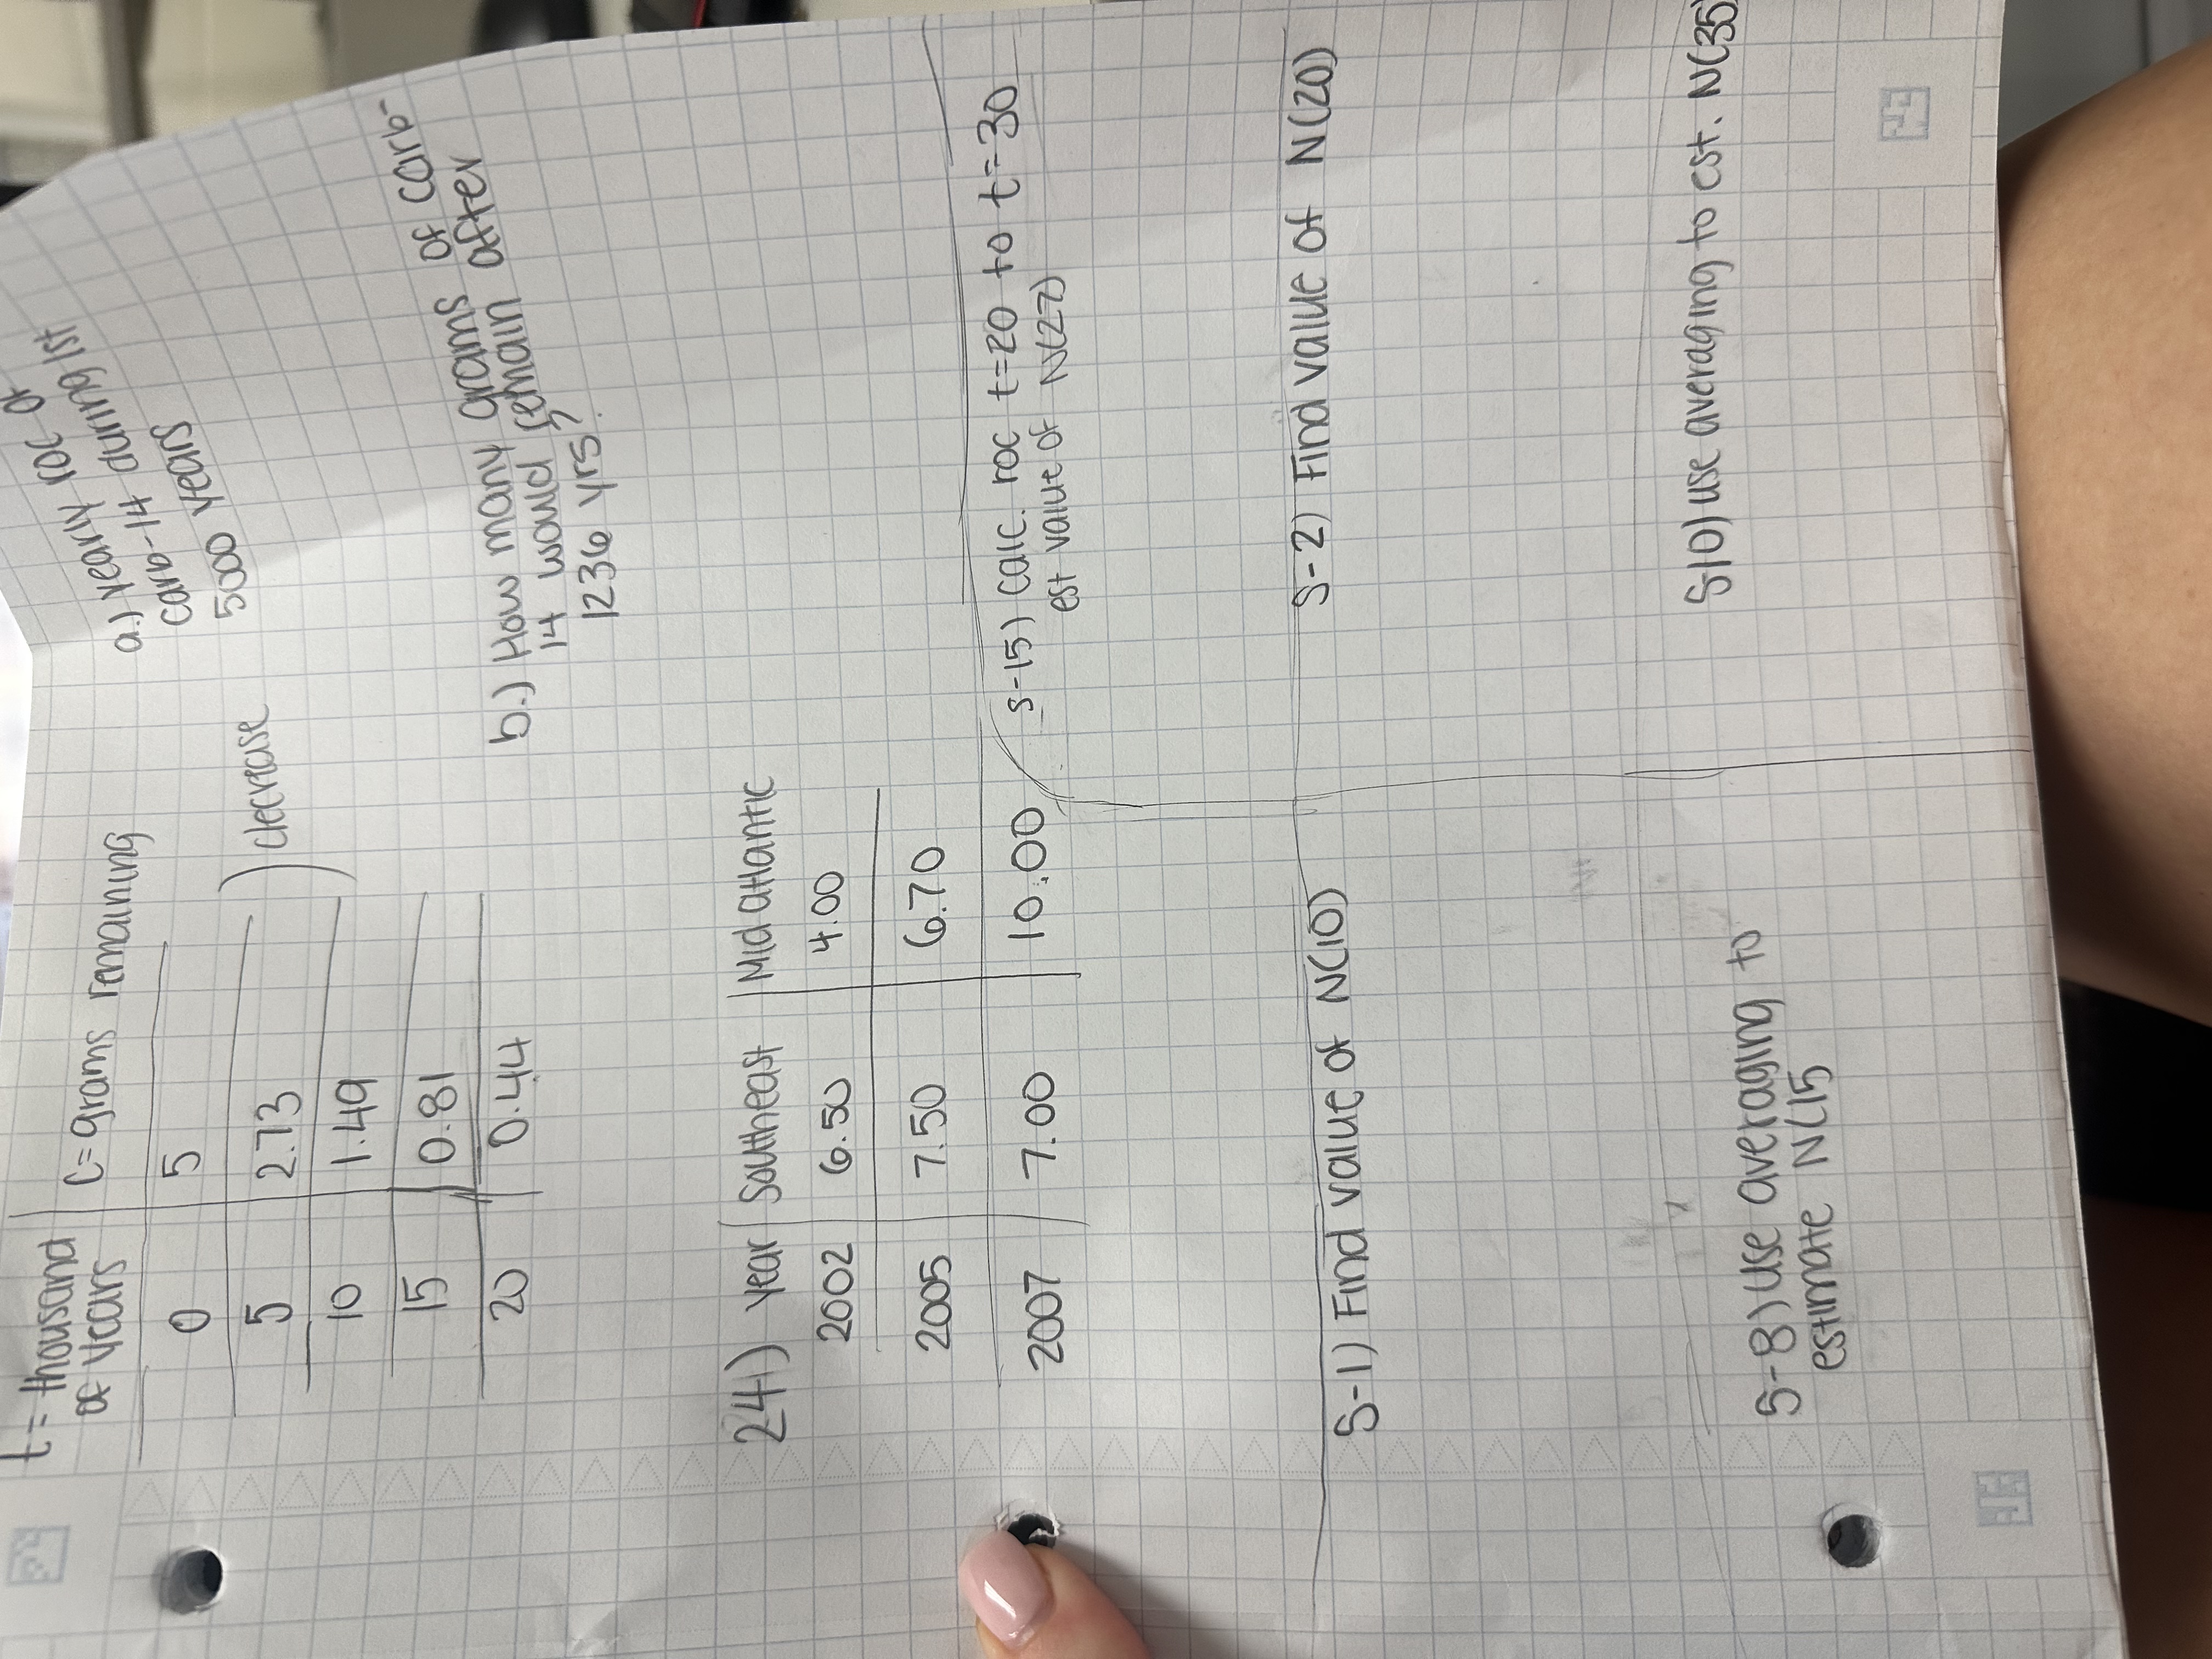 t = thousand of years | C = grams remaining
0 | 5
5 | 2.73
10 | 1.49
15 | 0.81
20 | 0.44
) decrease
a.) yearly roc of
carb-14 during 1st
5000 years
b.) How many grams of carb-
14 would remain after
1236 yrs?
24) year | Southeast | Mid atlantic
2002 | 6.50 | 4.00
2005 | 7.50 | 6.70
2007 | 7.00 | 10.00
S-15) calc. roc t=20 to t=30
est value of N(27)
S-1) Find value of N(10)
S-2) Find value of N(20)
S-8) use averaging to
estimate N(15
S10) use averaging to est. N(35)